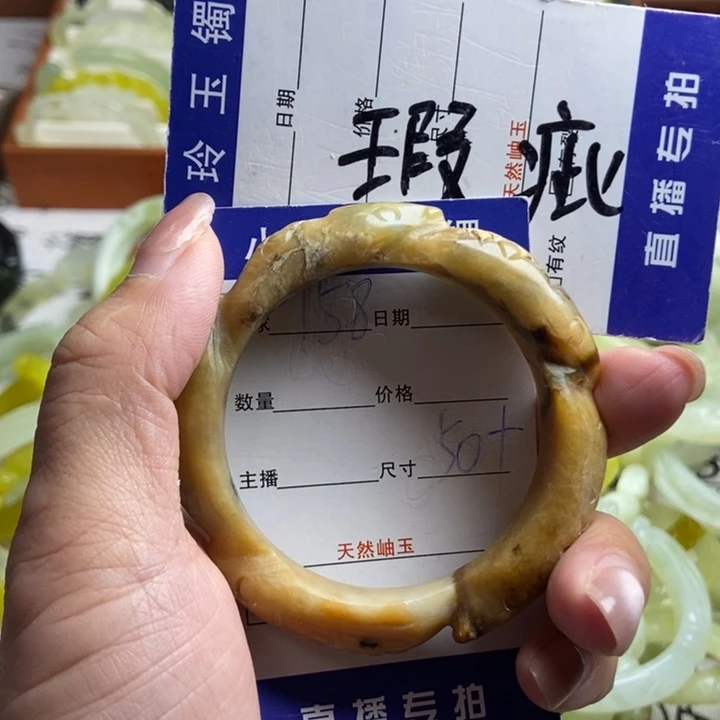 玲玉镯
日期
价格
尺寸
天然岫玉
瑕疵
有纹
直播专拍
158
日期
数量
价格
主播
尺寸 50+
天然岫玉
直播专拍